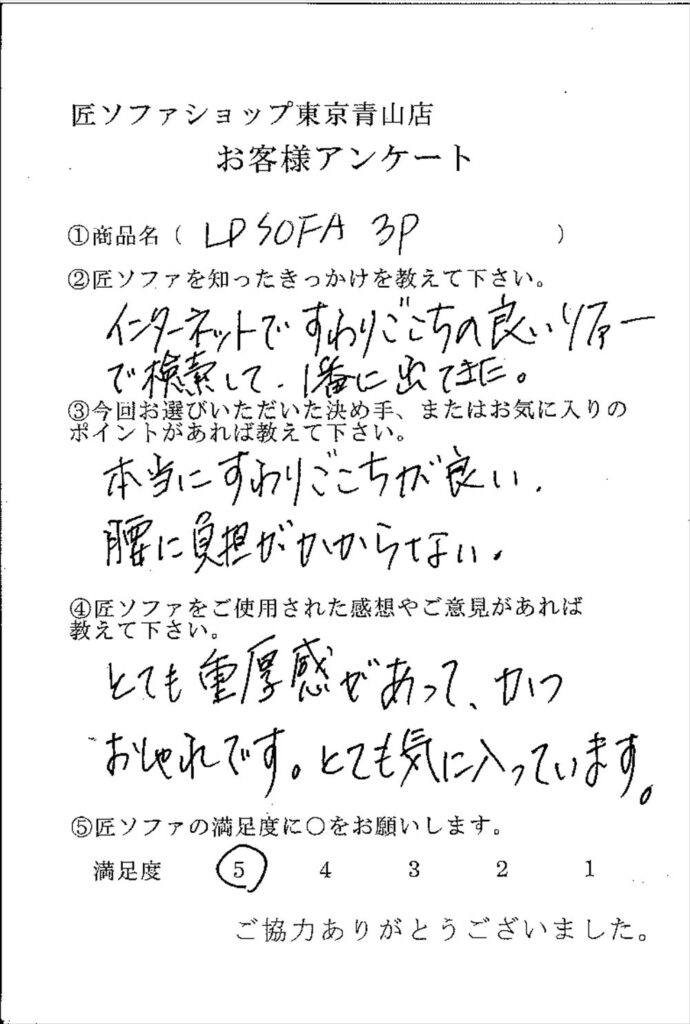 匠ソファショップ東京青山店
お客様アンケート
①商品名（ LP SOFA 3P ）
②匠ソファを知ったきっかけを教えて下さい。
インターネットですわりごこちの良いソファー
で検索して、1番に出てきた。
③今回お選びいただいた決め手、またはお気に入りの
ポイントがあれば教えて下さい。
本当にすわりごこちが良い、
腰に負担がかからない。
④匠ソファをご使用された感想やご意見があれば
教えて下さい。
とても重厚感があって、かつ
おしゃれです。とても気に入っています。
⑤匠ソファの満足度に〇をお願いします。
満足度 5 4 3 2 1
ご協力ありがとうございました。